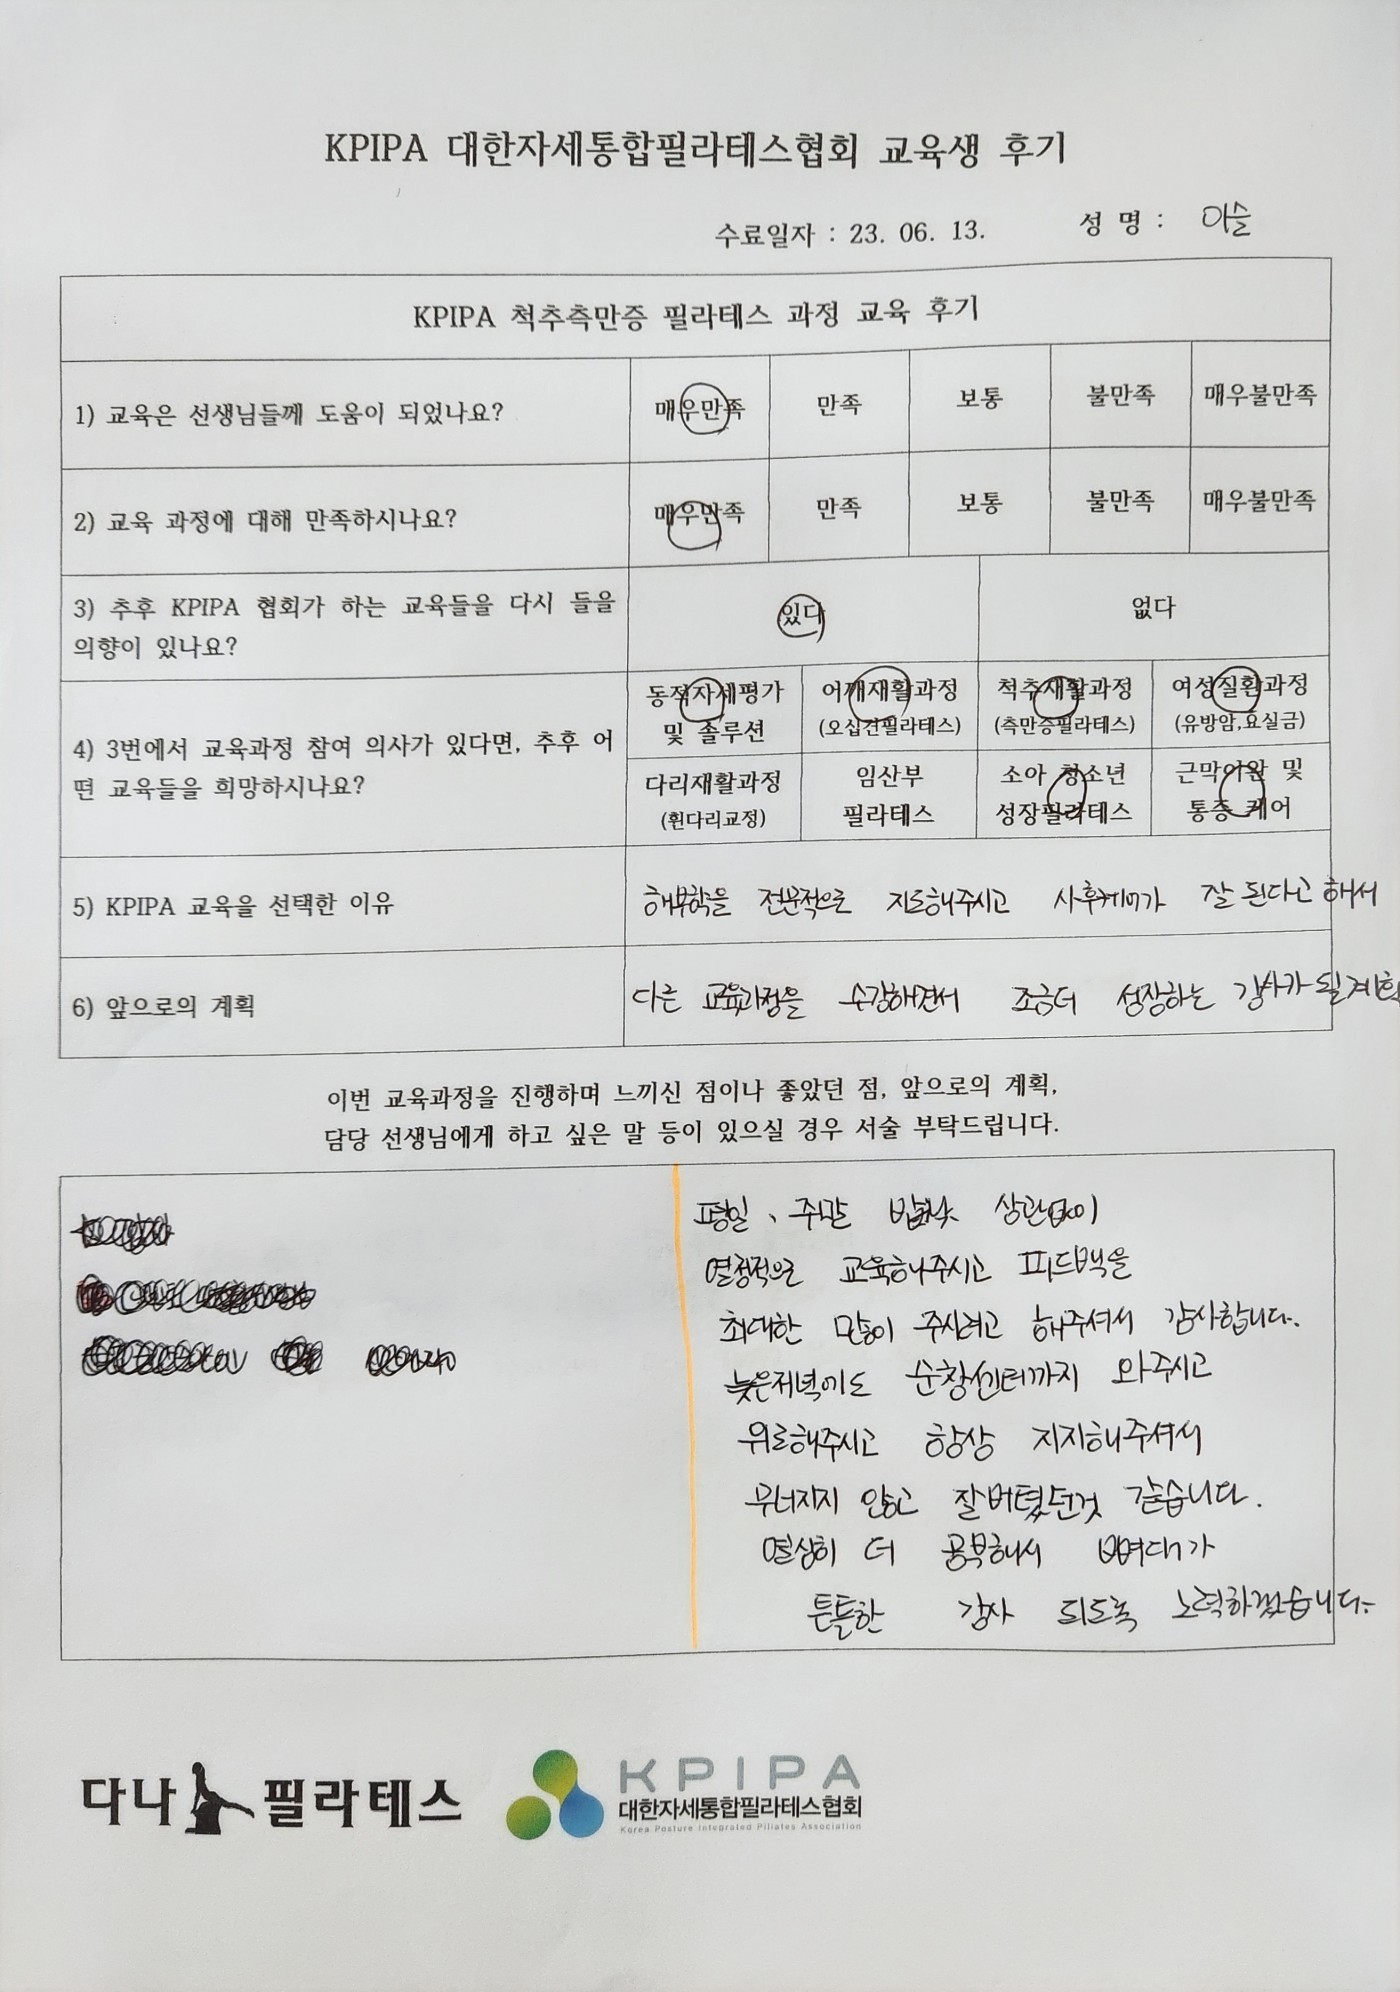 KPIPA 대한자세통합필라테스협회 교육생 후기
수료일자 : 23. 06. 13. 성 명 : 이슬
KPIPA 척추측만증 필라테스 과정 교육 후기
1) 교육은 선생님들께 도움이 되었나요? 매우만족 만족 보통 불만족 매우불만족
2) 교육 과정에 대해 만족하시나요? 매우만족 만족 보통 불만족 매우불만족
3) 추후 KPIPA 협회가 하는 교육들을 다시 들을
의향이 있나요?
있다 없다
4) 3번에서 교육과정 참여 의사가 있다면, 추후 어
떤 교육들을 희망하시나요?
동적자세평가 어깨재활과정 척추재활과정 여성질환과정
및 솔루션 (오십견필라테스) (측만증필라테스) (유방암,요실금)
다리재활과정 임산부 소아 청소년 근막이완 및
(휜다리교정) 필라테스 성장필라테스 통증 케어
5) KPIPA 교육을 선택한 이유 해부학을 전문적으로 지도해주시고 사후케어가 잘 된다고 해서
6) 앞으로의 계획 다른 교육과정을 수강해면서 조금더 성장하는 강사가 될계획
이번 교육과정을 진행하며 느끼신 점이나 좋았던 점, 앞으로의 계획,
담당 선생님에게 하고 싶은 말 등이 있으실 경우 서술 부탁드립니다.
평일, 주말 밤낮 상관없이
열정적으로 교육해주시고 피드백을
최대한 많이 주시려고 해주셔서 감사합니다.
늦은저녁에도 순창센터까지 와주시고
위로해주시고 항상 지지해주셔서
무너지지 않고 잘버텼던것 같습니다.
열심히 더 공부해서 뼈대가
튼튼한 강사 되도록 노력하겠습니다.
다나 필라테스
KPIPA
대한자세통합필라테스협회
Korea Posture Integrated Piliates Association